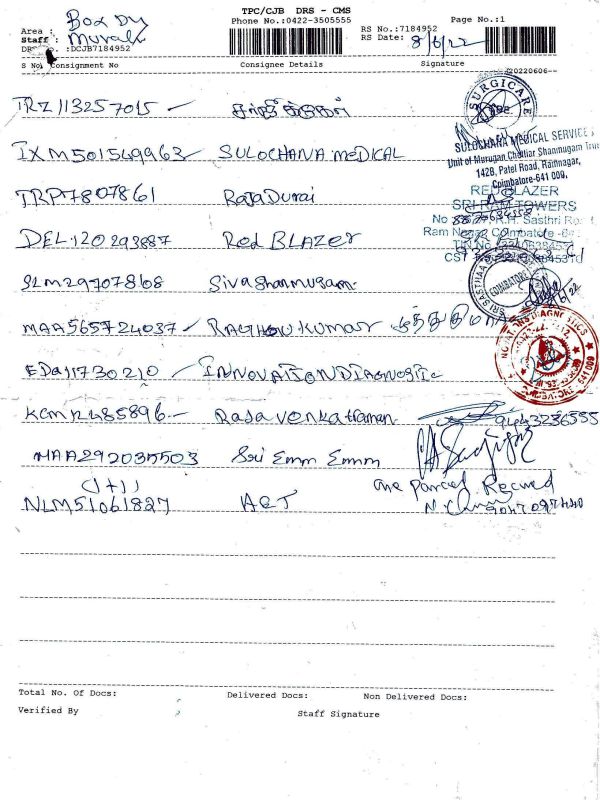 TPC/CJB DRS - CMS
Phone No.:0422-3505555
Page No.:1
Area :
Box Dy
Staff :
Murali
DRS No. :DCJB7184952
RS No.:7184952
RS Date:
8/6/22
S No Consignment No Consignee Details Signature
20220606
TRZ113257015
SURGICARE
IXM501549963 SULOCHANA MEDICAL
SULOCHANA MEDICAL SERVICE
Unit of Murugan Chettiar Shanmugam Trus
142B, Patel Road, Ramnagar,
Coimbatore-641 009.
TRP7807861 RajaDurai
RED BLAZER
SRI RAM TOWERS
DEL:120293887 Red BLAZER
R.H. Sasthri Ro
Ram Nagar, Coimbatore
TIN No
CST
SLM29707868 Sivashanmugam
SRI SASTHAA
COIMBATORE
MAA565724037 Raghav Kumar
EDA11730210 INNOVATION DIAGNOSTIC
KCM12485896 Raja Venkatraman
9443236555
MAA292035503 Sri Emm Emm
(1+1)
NLM51061827 AET
One Parcel Received
Total No. Of Docs: Delivered Docs: Non Delivered Docs:
Verified By Staff Signature